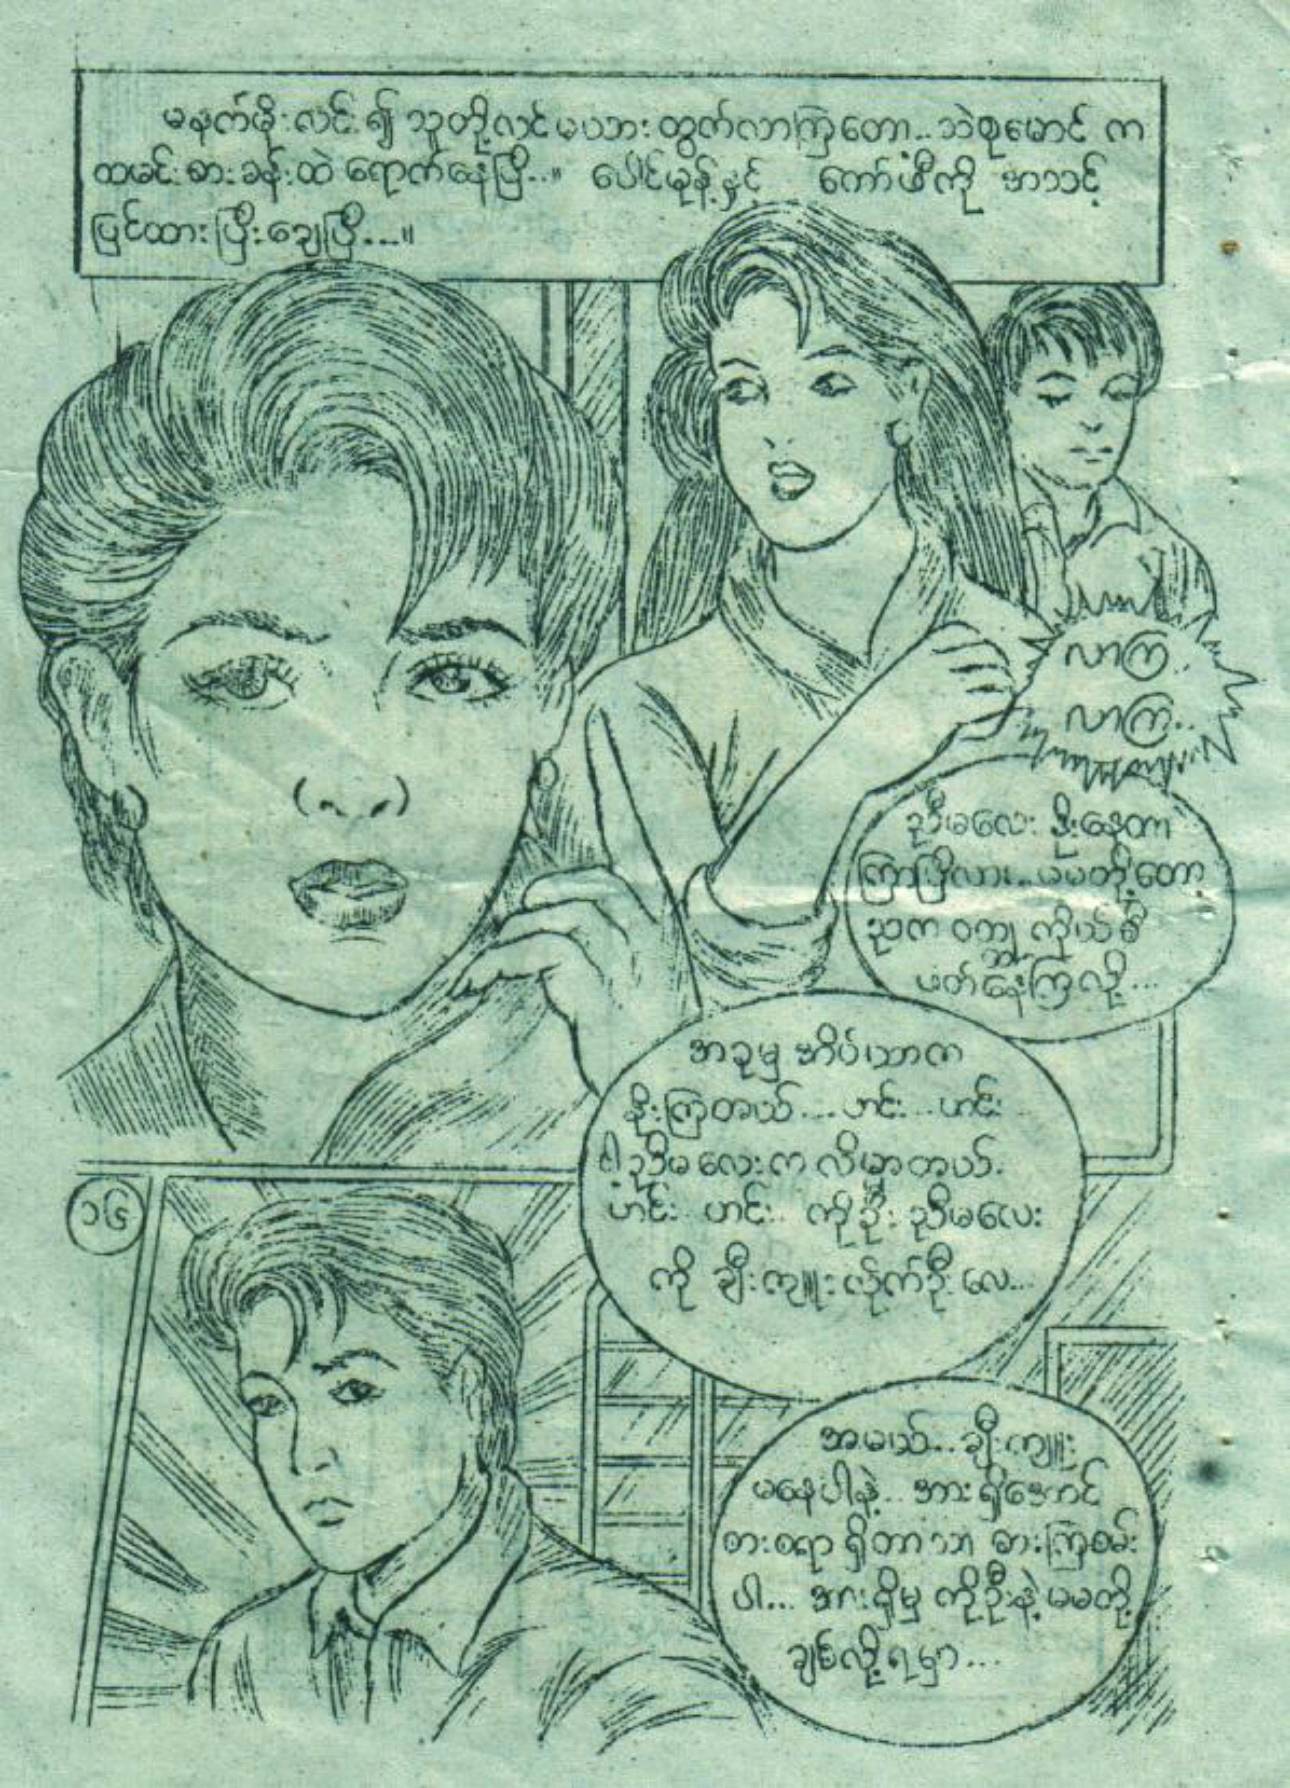 မနက်မိုးလင်း၍ သူတို့လင်မယားထွက်လာကြတော့.. သဲစုမောင် က
ထမင်းစားခန်းထဲ ရောက်နေပြီ...။ ပေါင်မုန့်နှင့် ကော်ဖီကို အသင့်
ပြင်ထားပြီးချေပြီ...။
လာကြ..
လာကြ..
ညီမလေး နိုးနေတာ
ကြာပြီလား...မမတို့တော့
ညက ဝတ္ထု ကိုယ်စီ
ဖတ်နေကြလို့...
အခုမှ အိပ်ယာက
နိုးကြတယ်....ဟင်း...ဟင်း
ငါ့ညီမလေးက လိမ္မာတယ်.
ဟင်း.. ဟင်း.. ကိုဦး ညီမလေး
ကို ချီးကျူးလိုက်ဦးလေ...
၁၆
အမယ်... ချီးကျူး
မနေပါနဲ့... အားရှိအောင်
စားစရာ ရှိတာသာ စားကြစမ်း
ပါ... အားရှိမှ ကိုဦးနဲ့ မမတို့
ချစ်လို့ရမှာ...